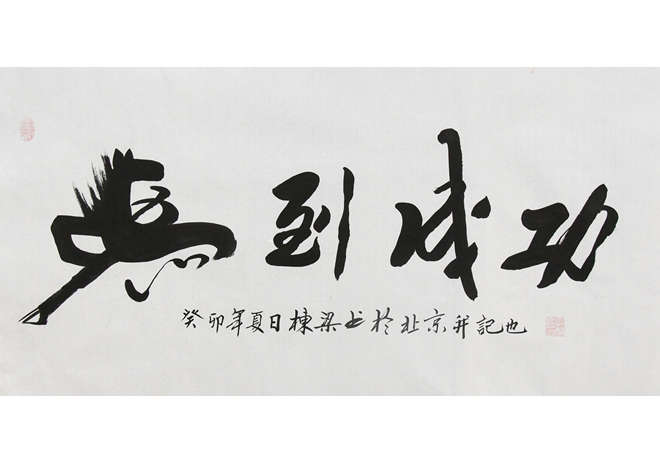 馬到成功
癸卯年夏日棟梁书於北京并記也